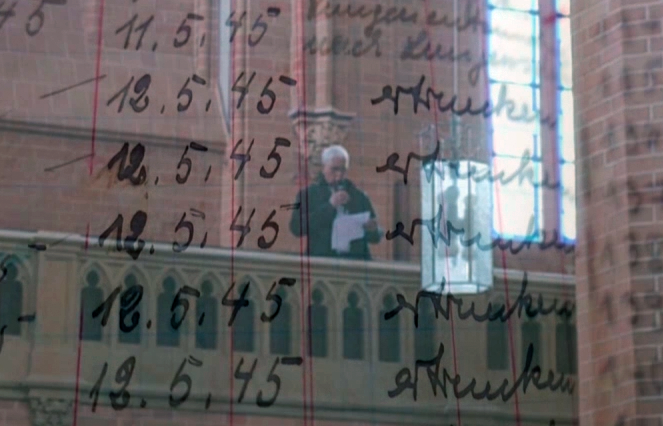 45 11.5.45 Lungenentz
nach Lungen
12.5.45 ertrunken
12.5.45 ertrunken
12.5.45 ertrunken
12.5.45 ertrunken
12.5.45 ertrunken